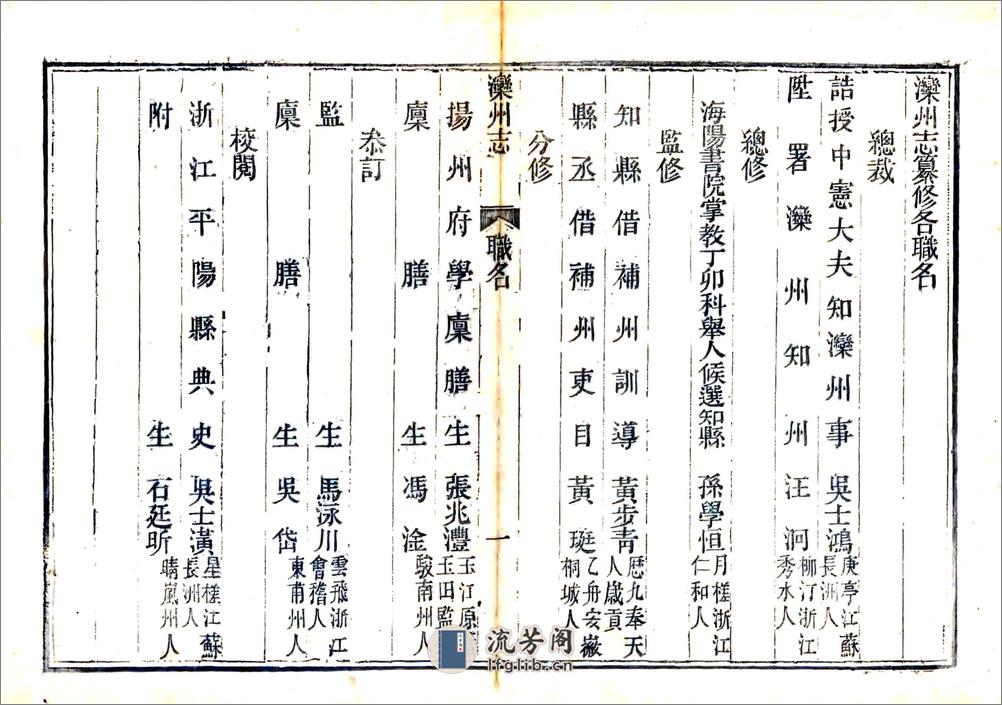 灤州志纂修各職名
總裁
誥授中憲大夫知灤州事吳士鴻庚亭江蘇長洲人
陞署灤州知州汪泂柳汀浙江秀水人
總修
海陽書院掌教丁卯科舉人候選知縣孫學恒月槎浙江仁和人
監修
知縣借補州訓導黃步青歴九奉天人歲貢
縣丞借補州吏目黃珽乙舟安徽桐城人
分修
灤州志 職名 一
揚州府學廩膳生張兆灃玉江原玉田監
廩膳生馮淦駿南州人
叅訂
監生馬泳川雲飛浙江會稽人
廩膳生吳岱東甫州人
校閱
浙江平陽縣典史吳士潢星槎江蘇長洲人
附生石廷昕晴嵐州人
流芳阁
lfglib.cn